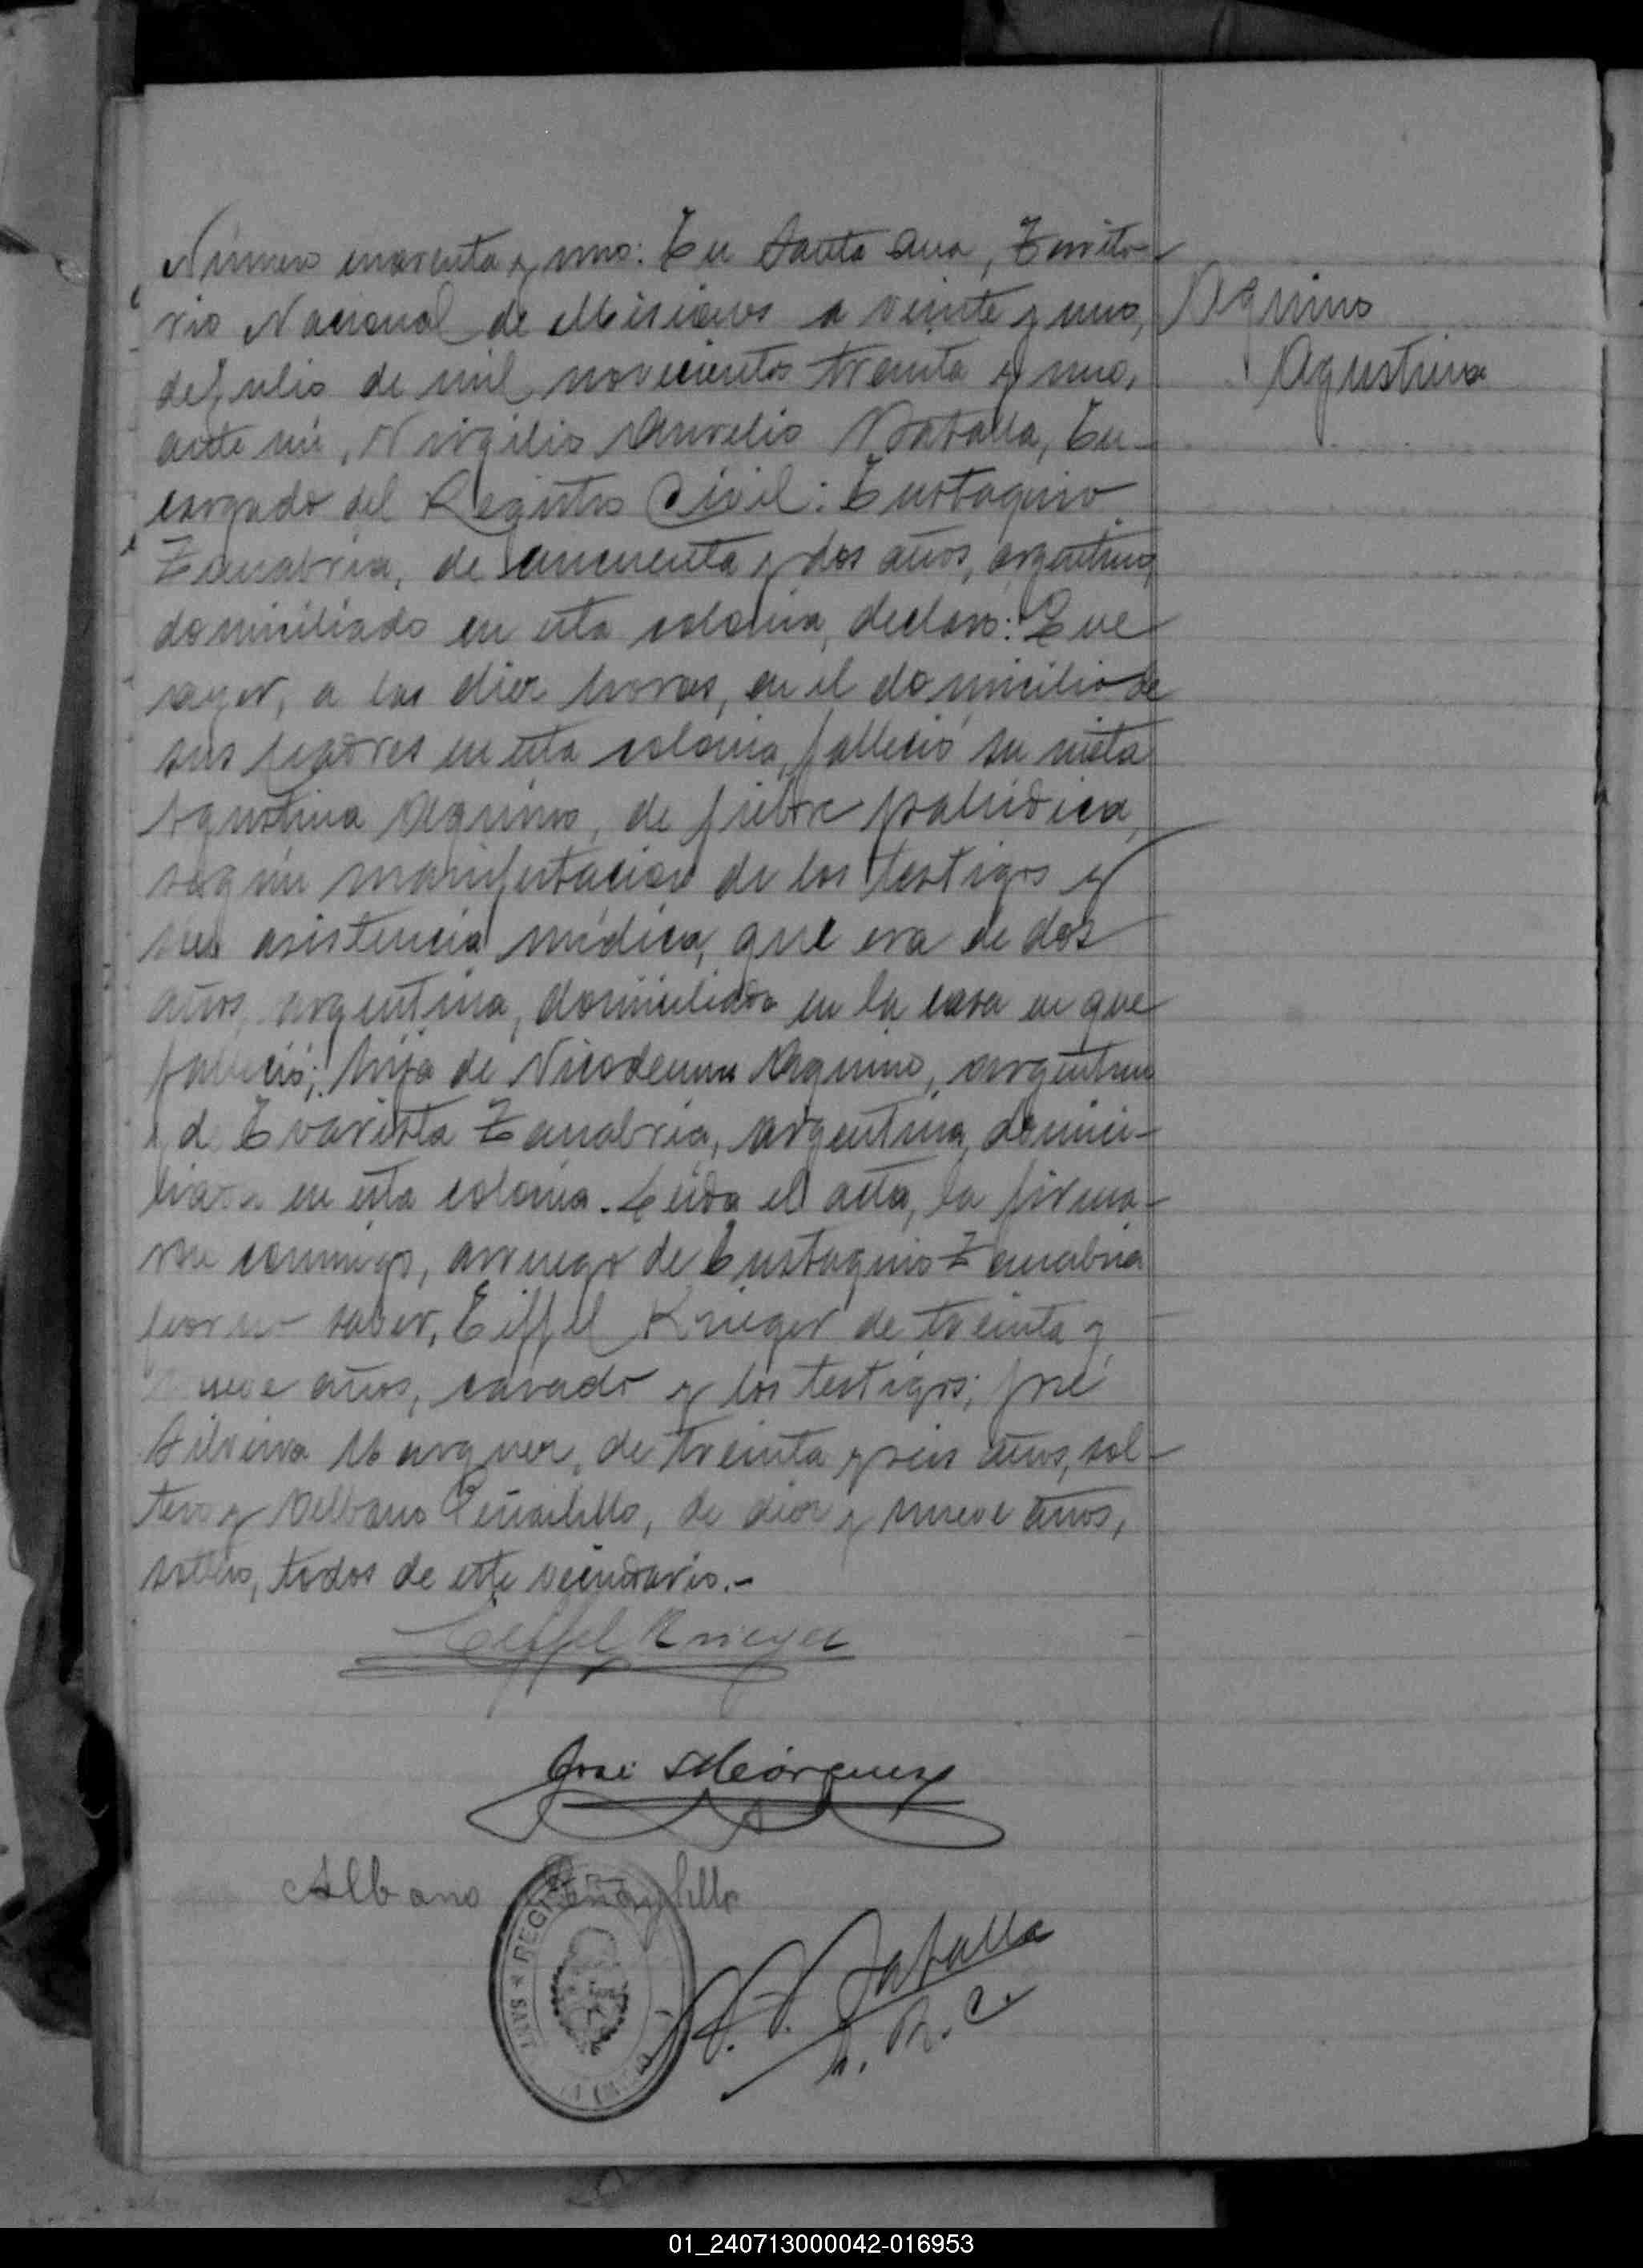 Número cuarenta y uno: En Santa Ana, Territo-
rio Nacional de Misiones a veinte y uno,
de Julio de mil novecientos treinta y uno,
ante mi, Virgilio Aurelio Batalla, En-
cargado del Registro Civil: Eustaquio
Zanabria, de cincuenta y dos años, argentino,
domiciliado en esta colonia, declaro: Que
ayer, a las diez horas, en el domicilio de
sus padres en esta colonia, falleció su nieta
Agustina Aquino, de fiebre palúdica,
según manifestacion de los testigos y
sin asistencia médica, que era de dos
años, argentina, domiciliada en la casa en que
falleció; hija de Nicodemus Aquino, argentino
y de Evarista Zanabria, argentina, domici-
liada en esta colonia. Leida el acta, la firma-
ron conmigo, arruego de Eustaquio Zanabria
por no saber, Eiffel Krieger de treinta y
nueve años, casado y los testigos; José
Silveira Marquez, de treinta y seis años, sol-
tero y Albano Peñailillo, de diez y nueve años,
soltero, todos de este vecindario.-
Aquino
Agustina
Eiffel Krieger
José Márquez
Albano Peñaylillo
REGISTRO
V. A. Batalla
E. R. C.
01_240713000042-016953